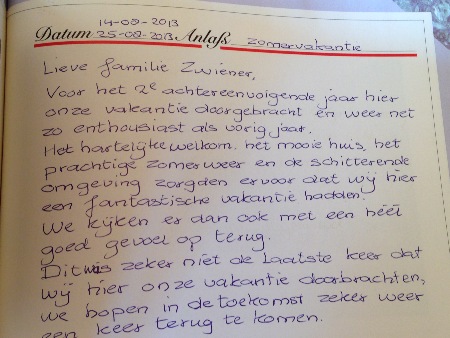 14-08-2013
Datum 25-08-2013 Anlaß zomervakantie
Lieve familie Zwiener,
Voor het 2e achtereenvolgende jaar hier
onze vakantie doorgebracht en weer net
zo enthousiast als vorig jaar.
Het hartelijke welkom, het mooie huis, het
prachtige zomerweer en de schitterende
omgeving zorgden ervoor dat wij hier
een fantastische vakantie hadden!
We kijken er dan ook met een héél
goed gevoel op terug.
Dit was zeker niet de laatste keer dat
wij hier onze vakantie doorbrachten,
we hopen in de toekomst zeker weer
een keer terug te komen.